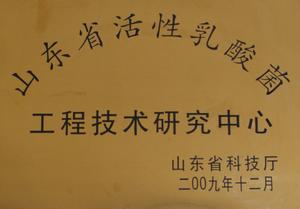 山东省活性乳酸菌
工程技术研究中心
山东省科技厅
二00九年十二月